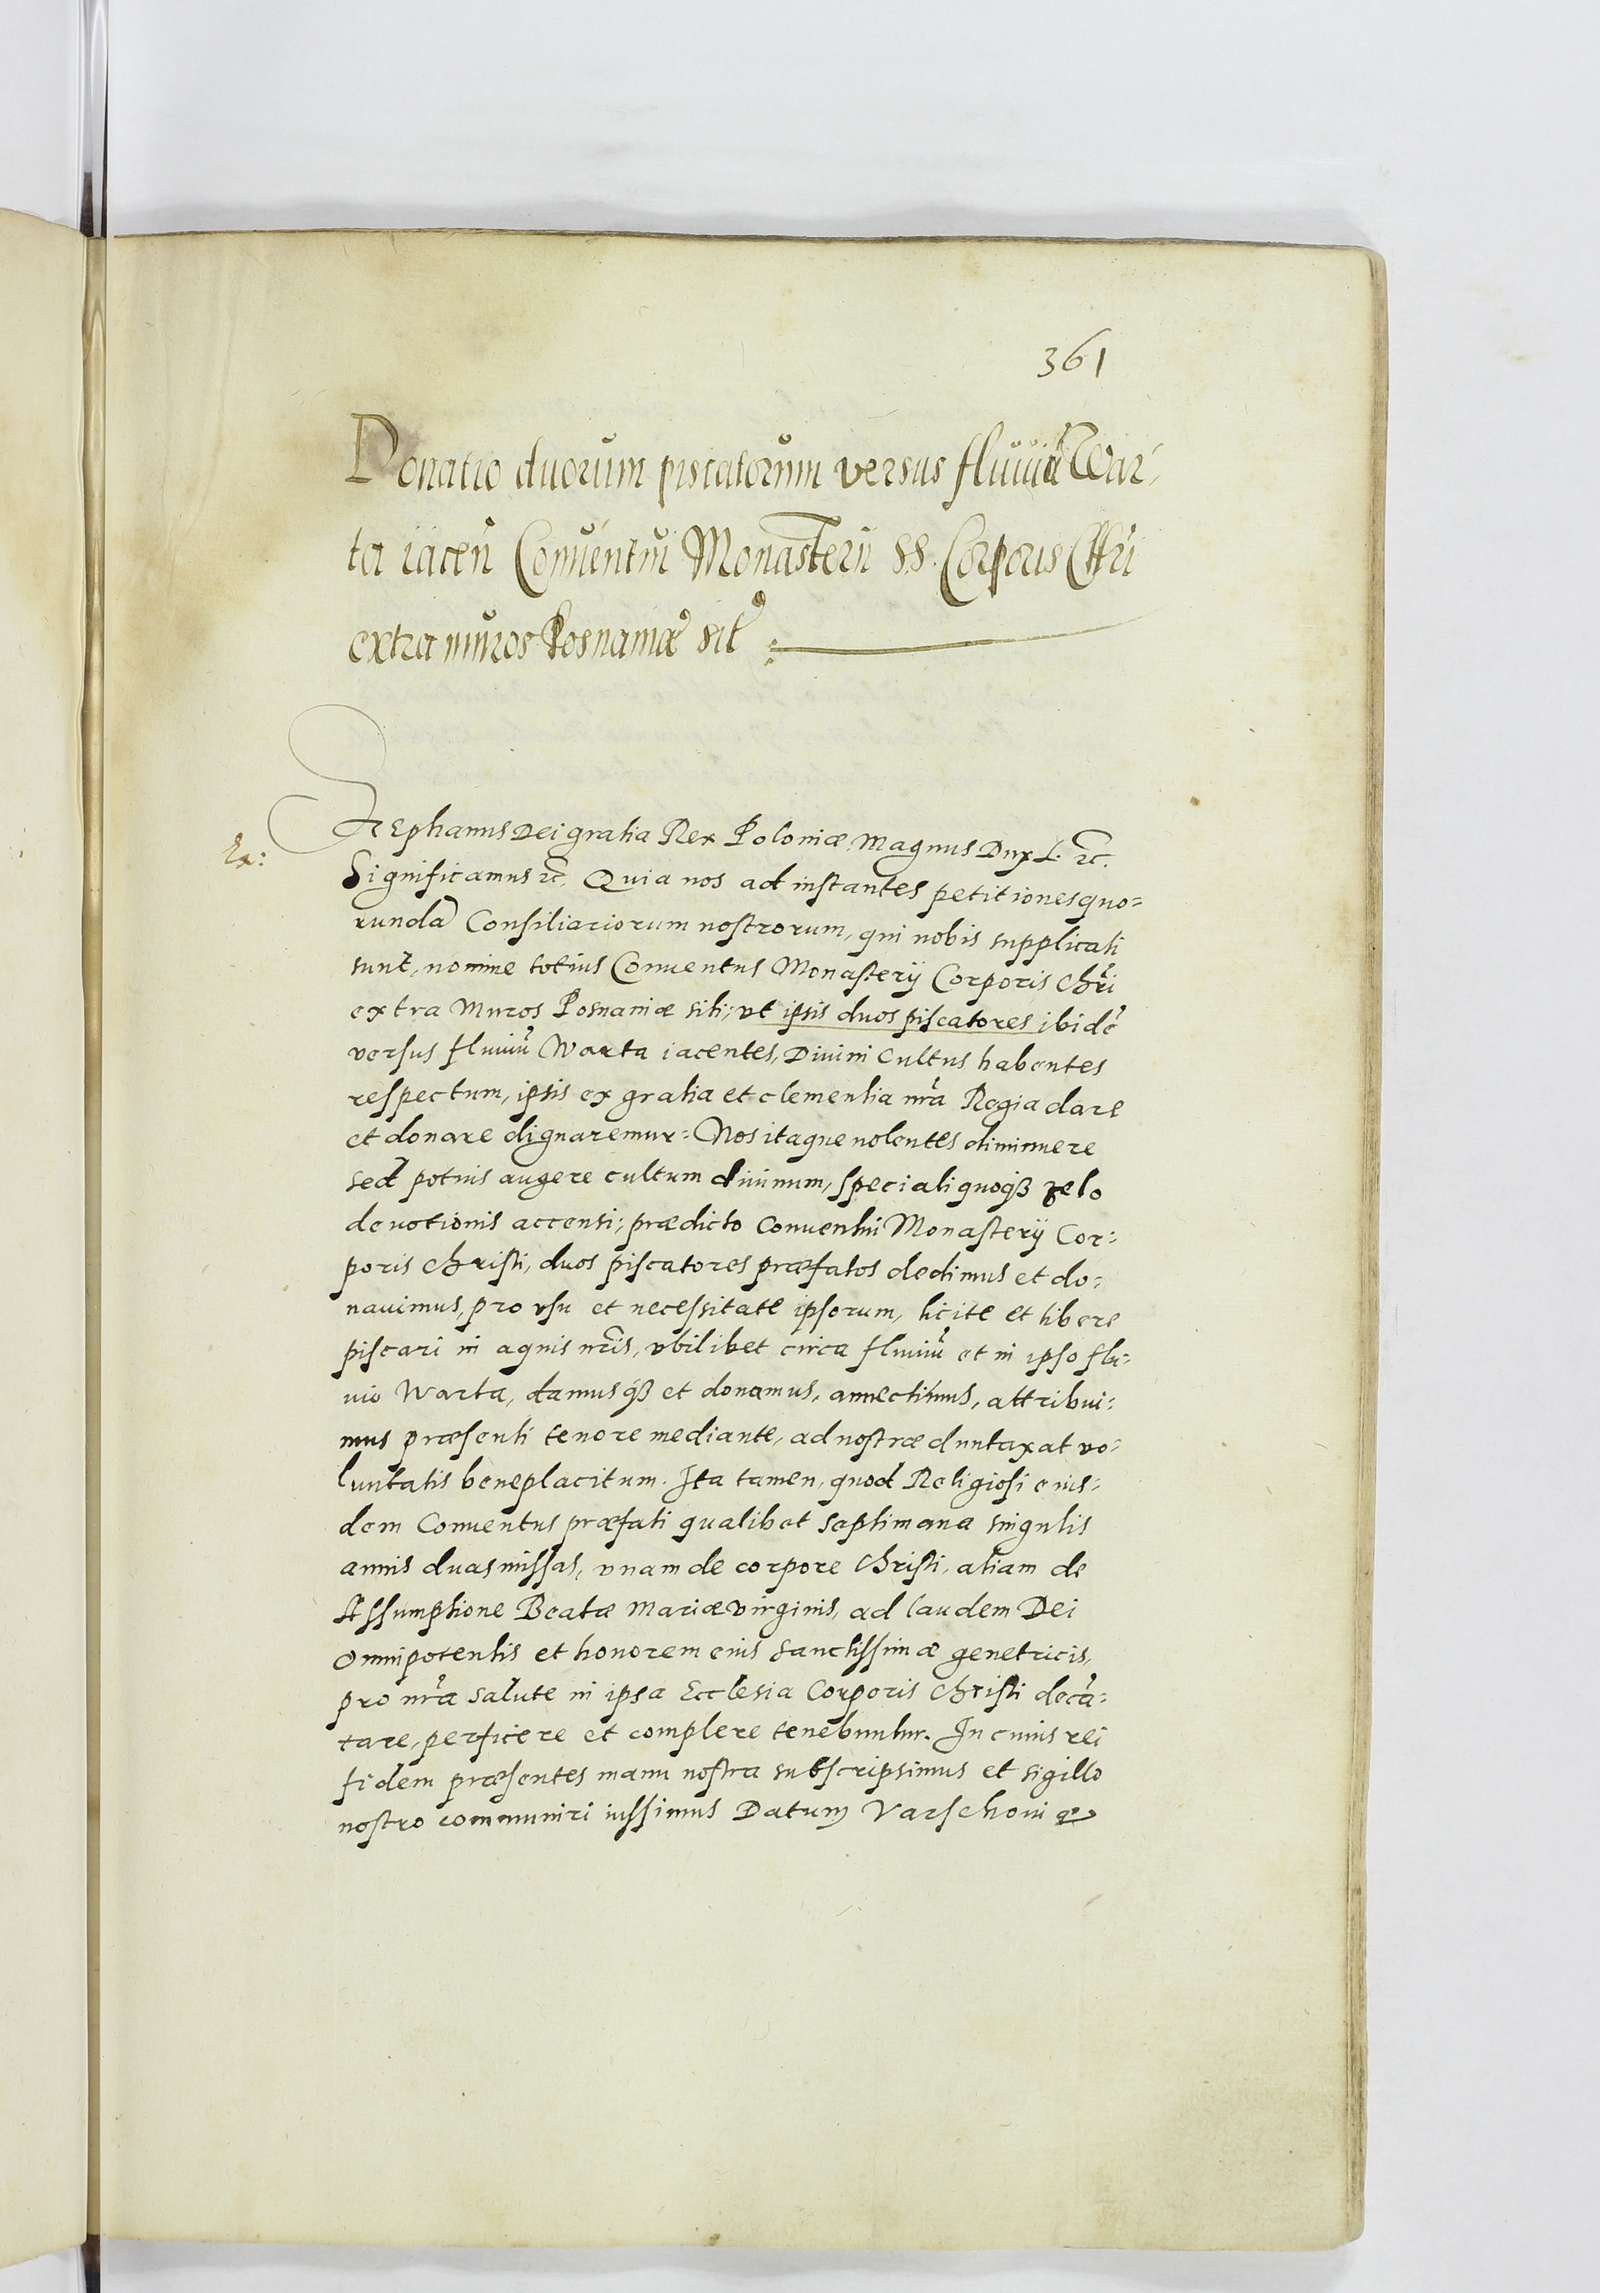 361
Donatio duorum piscatorum versus fluuiũ War-
ta iaceñ Conuentui Monasterii SS. Corporis Chri
extra muros Posnaniæ sit:
Stephanus Dei gratia Rex Poloniæ Magnus Dux L. etc.
Ex:
Significamus etc. Quia nos ad instantes petitiones quo=
rundã Consiliariorum nostrorum, qui nobis supplicati
sunt, nomine totius Conuentus Monasterij Corporis Chri
extra Muros Posnaniæ siti; vt ipsis duos piscatores ibidẽ
versus fluuiũ Warta iacentes, Diuini Cultus habentes
respectum, ipsis ex gratia et clementia nr̃a Regia dare
et donare dignaremur: Nos itaque nolentes diminuere
sed potius augere cultum diuinum, speciali quoqȝ zelo
deuotionis accensi; prædicto Conuentui Monasterij Cor:
poris Christi, duos piscatores præfatos dedimus et do:
nauimus, pro vsu et necessitate ipsorum, licite et libere
piscari in aquis nr̃is, vbilibet circa fluuiũ et in ipso flu:
uio Warta, damusqȝ et donamus, annectimus, attribui:
mus præsenti tenore mediante, ad nostræ duntaxat vo:
luntatis beneplacitum. Ita tamen, quod Religiosi eius:
dem Conuentus præfati qualibet septimana singulis
annis duas missas, vnam de corpore Christi, aliam de
Assumptione Beatæ Mariæ virginis, ad laudem Dei
Omnipotentis et honorem eius sanctissimæ genetricis,
pro nr̃a salute in ipsa Ecclesia Corporis Christi decã:
tare, perficere et complere tenebuntur. In cuius rei
fidem præsentes manu nostra subscripsimus et sigillo
nostro communiri iussimus Datum Varschoui